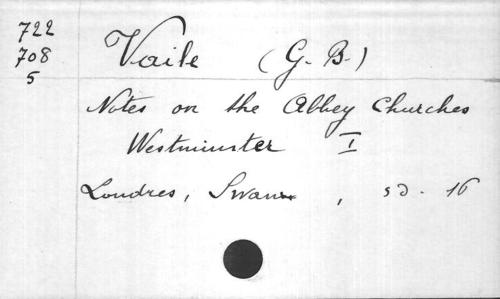 722
708
5
Vaile (G. B.)
Notes on the Abbey Churches
Westminster I
Londres, Swan , sd. 16